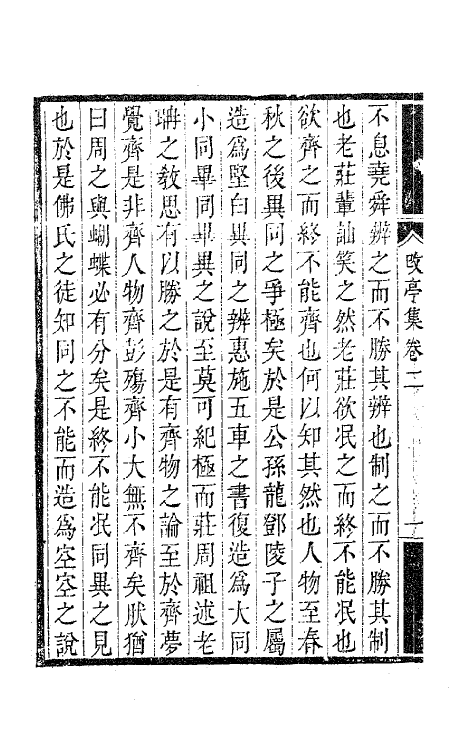 改亭集卷二
不息堯舜辨之而不勝其辨也制之而不勝其制
也老莊輩訕笑之然老莊欲泯之而終不能泯也
欲齊之而終不能齊也何以知其然也人物至春
秋之後異同之爭極矣於是公孫龍鄧陵子之屬
造爲堅白異同之辨惠施五車之書復造爲大同
小同畢同畢異之說至莫可紀極而莊周祖述老
聃之敎思有以勝之於是有齊物之論至於齊夢
覺齊是非齊人物齊彭殤齊小大無不齊矣肰猶
曰周之與蝴蝶必有分矣是終不能泯同異之見
也於是佛氏之徒知同之不能而造爲空空之說